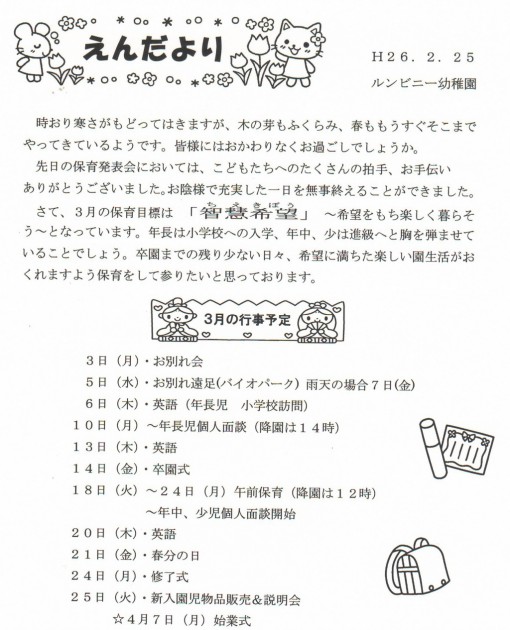 えんだより
H26.2.25
ルンビニー幼稚園
時おり寒さがもどってはきますが、木の芽もふくらみ、春ももうすぐそこまで
やってきているようです。皆様にはおかわりなくお過ごしでしょうか。
先日の保育発表会においては、こどもたちへのたくさんの拍手、お手伝い
ありがとうございました。お陰様で充実した一日を無事終えることができました。
さて、3月の保育目標は 「智慧希望」 ～希望をもち楽しく暮らそ
う～となっています。年長は小学校への入学、年中、少は進級へと胸を弾ませて
いることでしょう。卒園までの残り少ない日々、希望に満ちた楽しい園生活がお
くれますよう保育をして参りたいと思っております。
3月の行事予定
3日（月）・お別れ会
5日（水）・お別れ遠足(バイオパーク) 雨天の場合7日(金)
6日（木）・英語（年長児 小学校訪問）
10日（月）～年長児個人面談（降園は14時）
13日（木）・英語
14日（金）・卒園式
18日（火）～24日（月）午前保育（降園は12時）
～年中、少児個人面談開始
20日（木）・英語
21日（金）・春分の日
24日（月）・修了式
25日（火）・新入園児物品販売＆説明会
☆4月7日（月）始業式